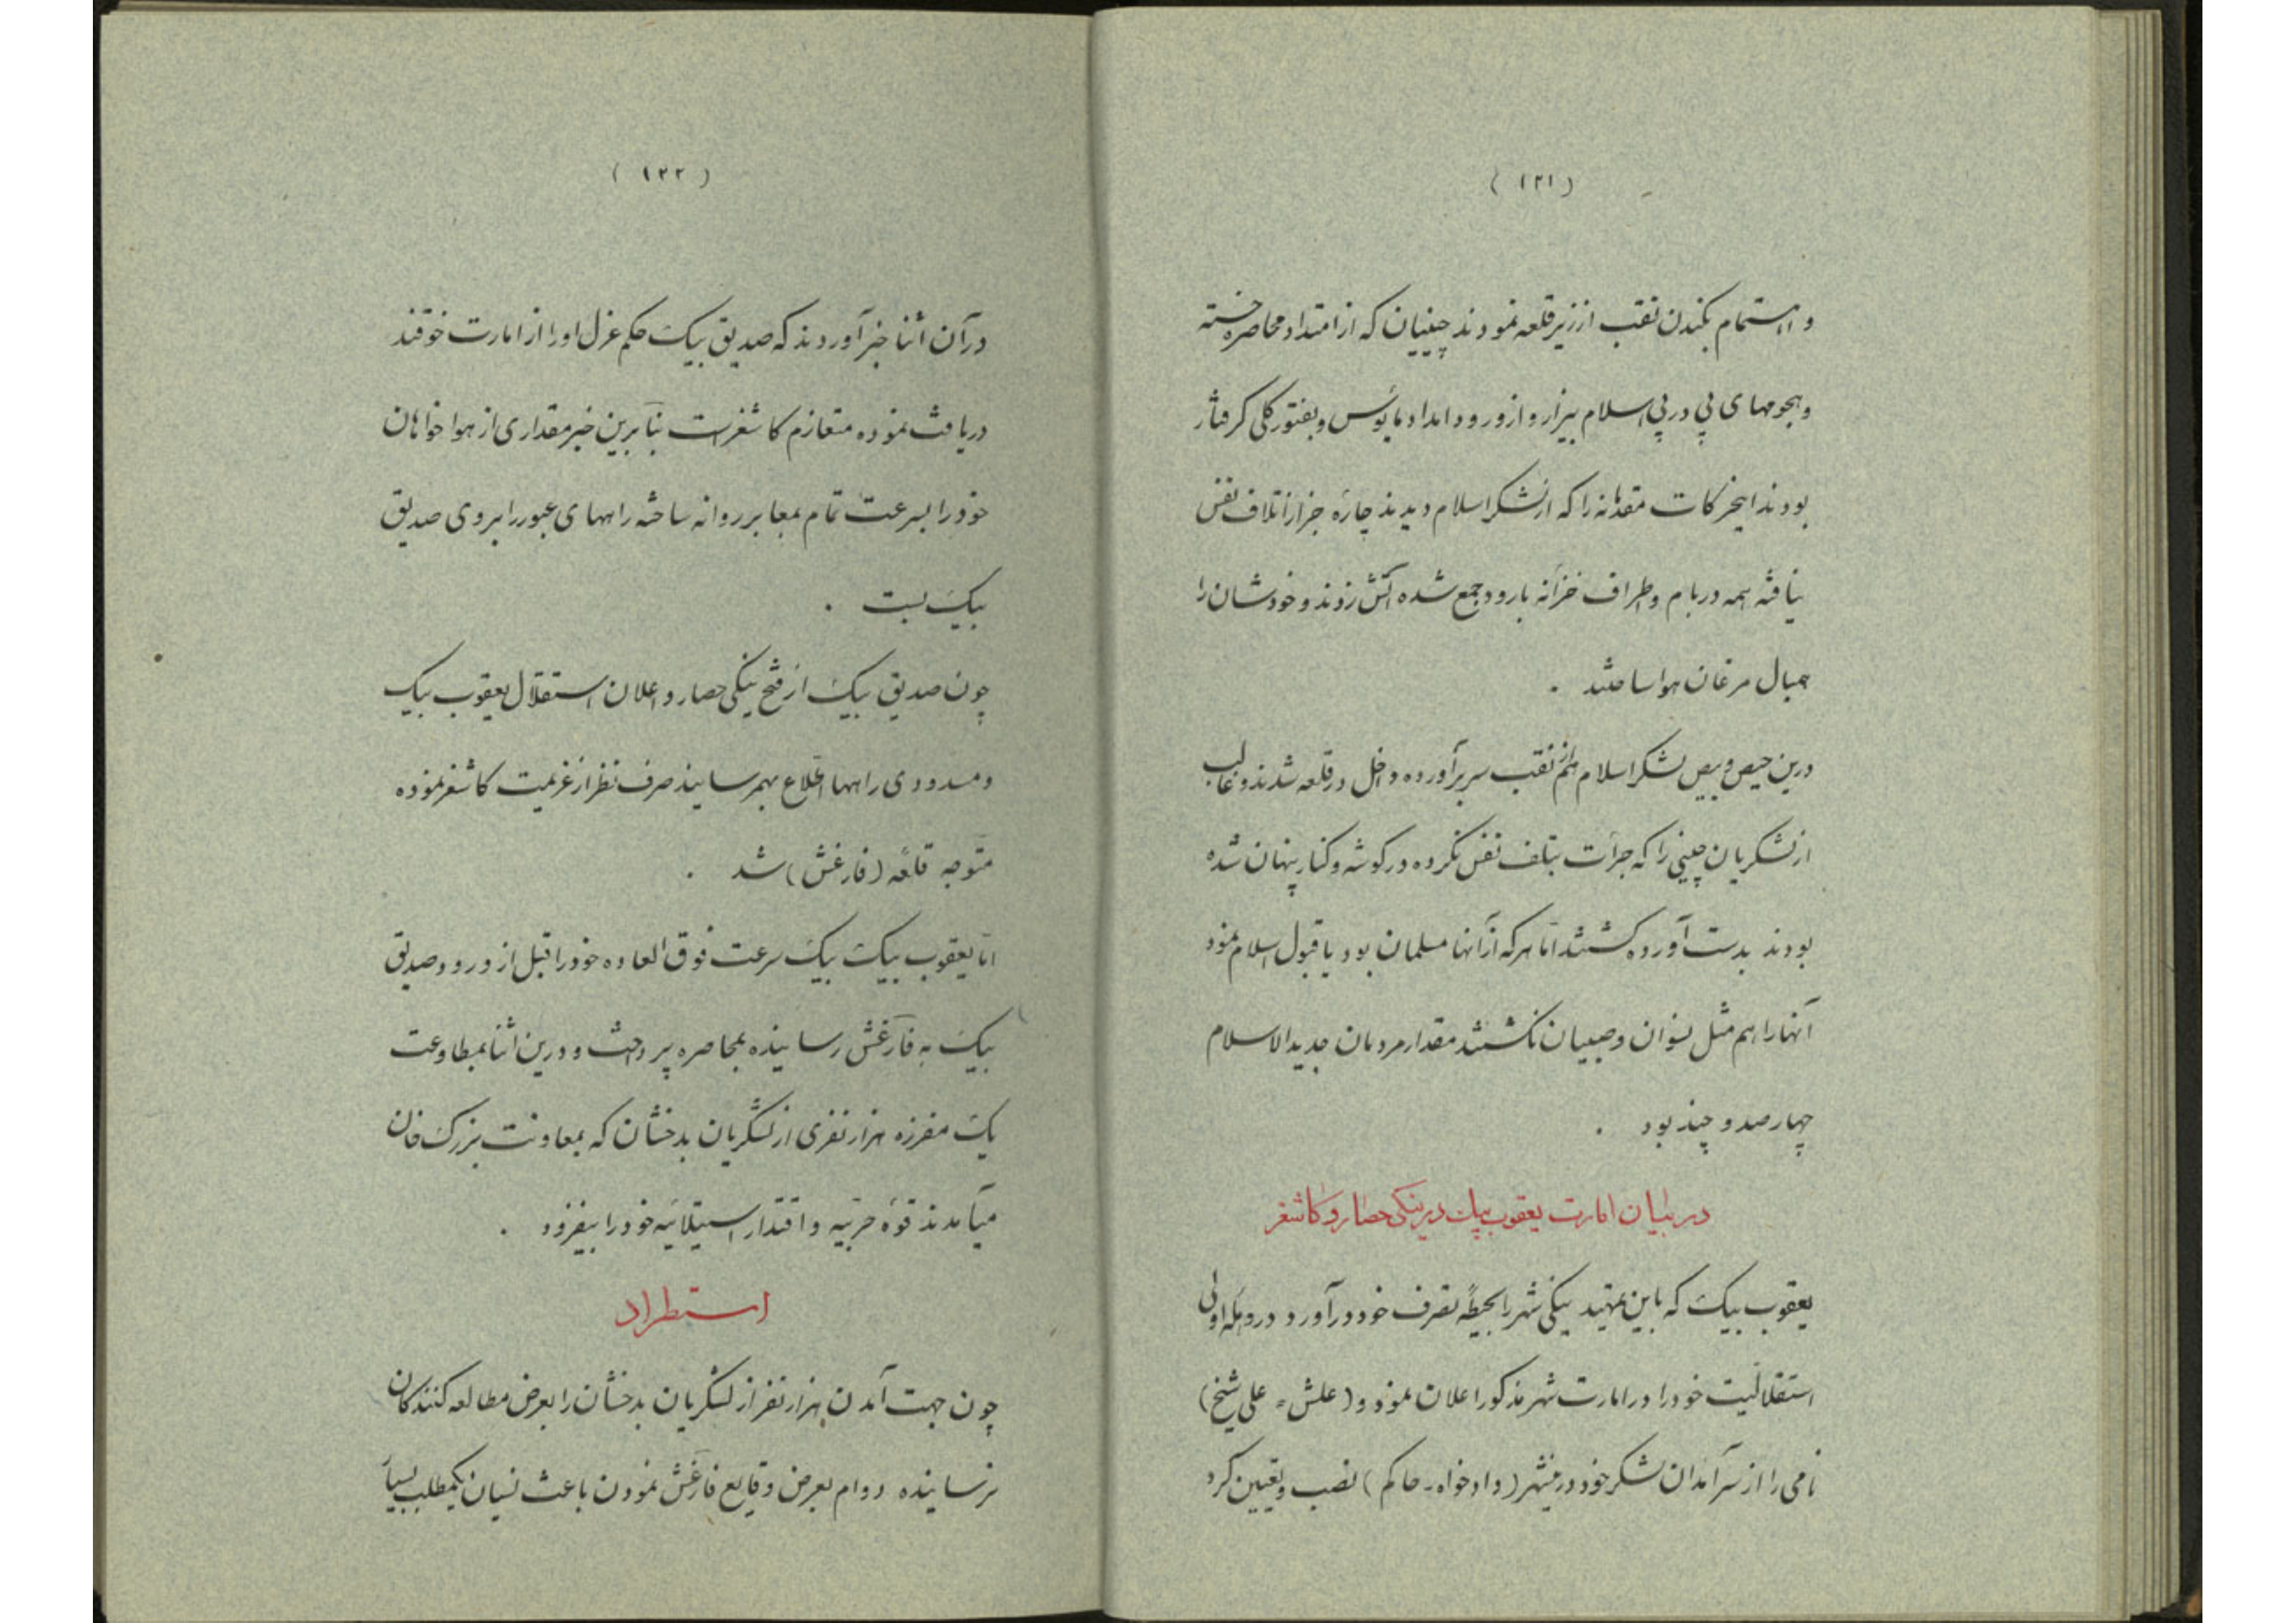 (۱۲۱)
و اهتمام بکندن نقب از زیر قلعه نمودند چینیان که از امتداد محاصره خسته
و هجومهای پی در پی اسلام بیزار و از ورود امداد مایوس و بفتور کلی گرفتار
بودند اینحرکات مقدمانه را که از لشکر اسلام دیدند چارهٔ جز از اتلاف نفس
نیافته همه در بام و اطراف خزانه بارود جمع شده آتش زدند و خودشان را
همبال مرغان هوا ساختند .
درین حیص و بیص لشکر اسلام هم از نقب سر برآورده داخل در قلعه شدند و غالب
از لشکریان چینی را که جرأت بتلف نفس نکرده در گوشه و کنار پنهان شده
بودند بدست آورده کشتند اما هر که از آنها مسلمان بود یا قبول اسلام نمود
آنها را هم مثل نسوان و صبیان نکشتند مقدار مردمان جدید الاسلام
چهارصد و چند بود .
در بیان امارت یعقوب بیک در ینکی حصار و کاشغر
یعقوب بیک که باین تمهید ینکی شهر را بحیطهٔ تصرف خود درآورد در وهلهٔ اولی
استقلالیت خود را در امارت شهر مذکور اعلان نمود و (علش = علی شیخ)
نامی را از سرآمدان لشکر خود در ینشهر (دادخواه - حاکم) نصب و تعیین کرد
(۱۲۲)
در آن اثنا خبر آوردند که صدیق بیک حکم عزل او را از امارت خوقند
دریافت نموده متعازم کاشغر است بنابرین خبر مقداری از هوا خواهان
خود را بسرعت تمام بمعابر روانه ساخته راههای عبور را بروی صدیق
بیک بست .
چون صدیق بیک از فتح ینکی حصار و اعلان استقلال یعقوب بیک
و مسدودی راهها اطلاع بهمرسانید صرف نظر از عزیمت کاشغر نموده
متوجه قلعه (فارغش) شد .
اما یعقوب بیک بیک سرعت فوق العاده خود را قبل از ورود صدیق
بیک به فارغش رسانیده بمحاصره پرداخت و درین اثنا بمطاوعت
یک مفرزه هزار نفری از لشکریان بدخشان که بمعاونت بزرک خان
میآمدند قوهٔ حربیه و اقتدار استیلائیه خود را بیفزود .
استطراد
چون جهت آمدن هزار نفر از لشکریان بدخشان را بعرض مطالعه کنندکان
نرسانیده دوام بعرض وقایع فارغش نمودن باعث نسیان یکمطلب بسیار